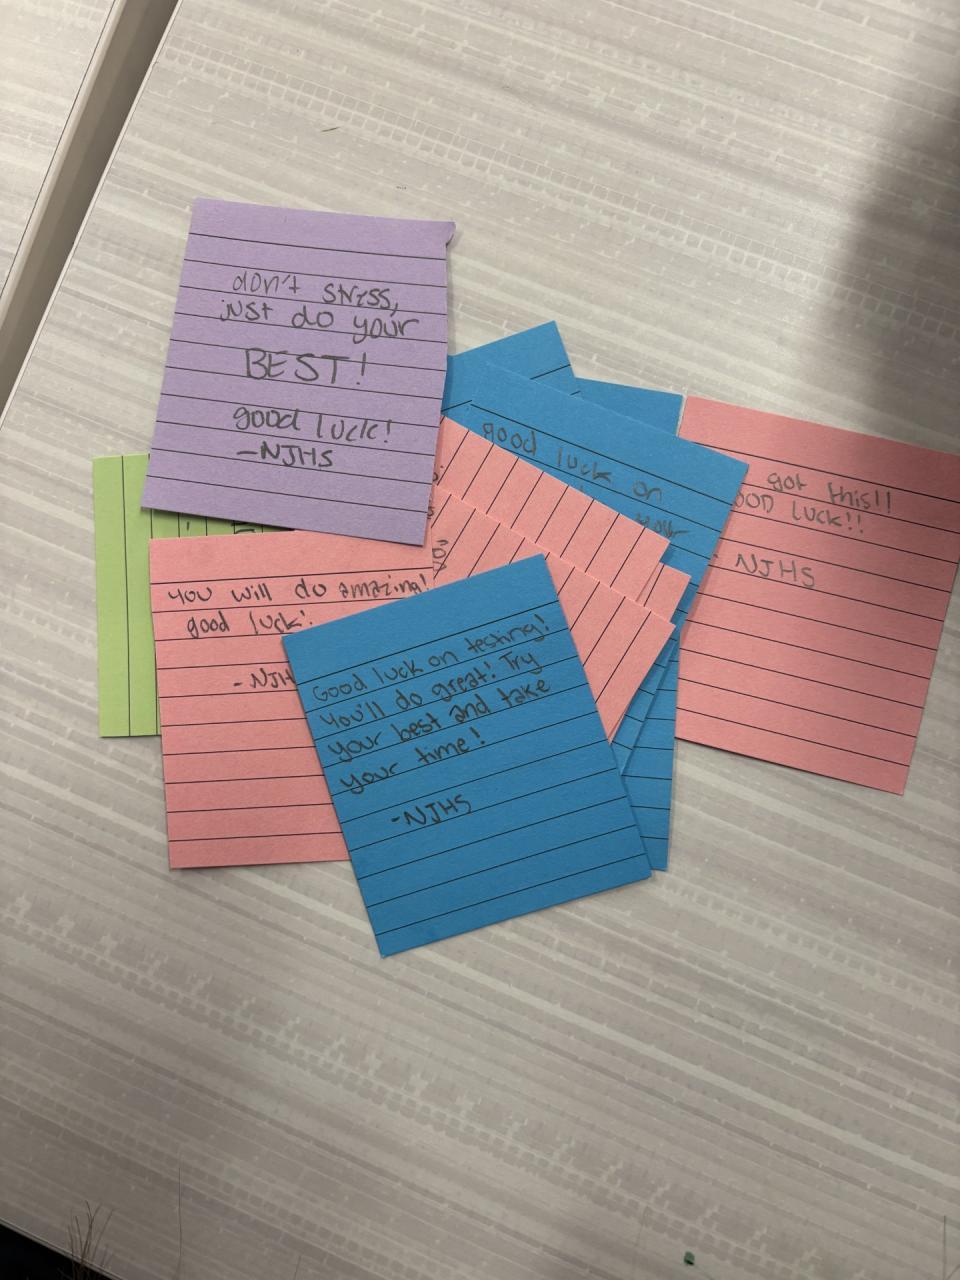 don't stress,
just do your
BEST!
good luck!
-NJHS
good luck on
your
got this!!
LUCK!!
NJHS
you will do amazing!
good luck!
Good luck on testing!
You'll do great! Try
your best and take
your time!
-NJHS